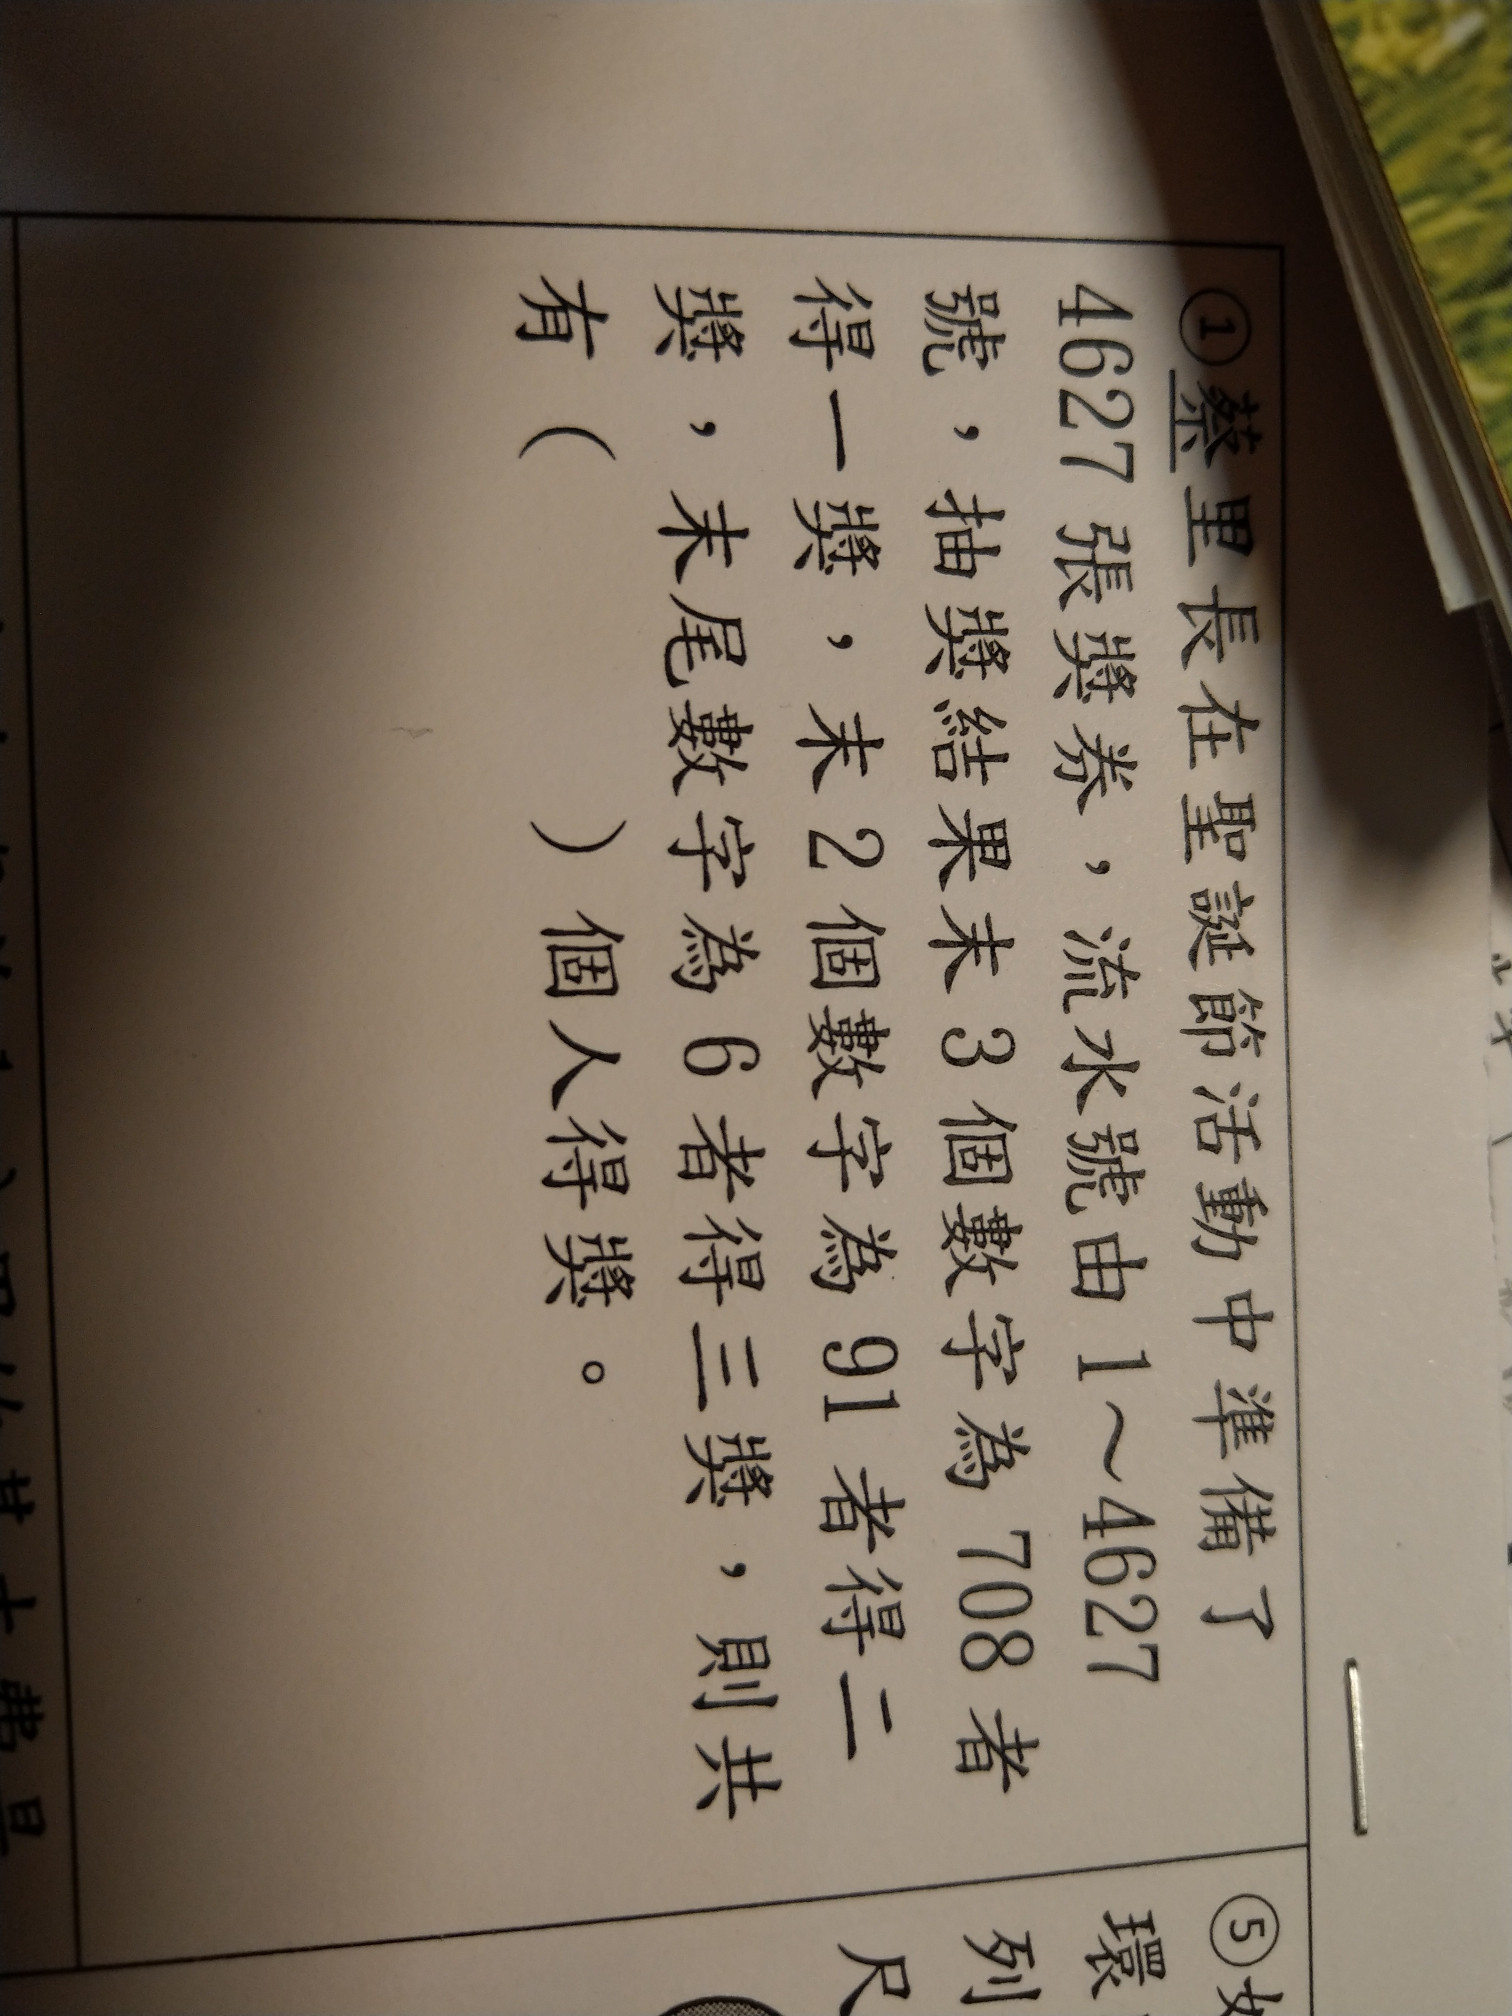 ①蔡里長在聖誕節活動中準備了
4627 張獎券，流水號由 1～4627
號，抽獎結果末 3 個數字為 708 者
得一獎，末 2 個數字為 91 者得二
獎，末尾數字為 6 者得三獎，則共
有（　　　　）個人得獎。
⑤
環
列
尺